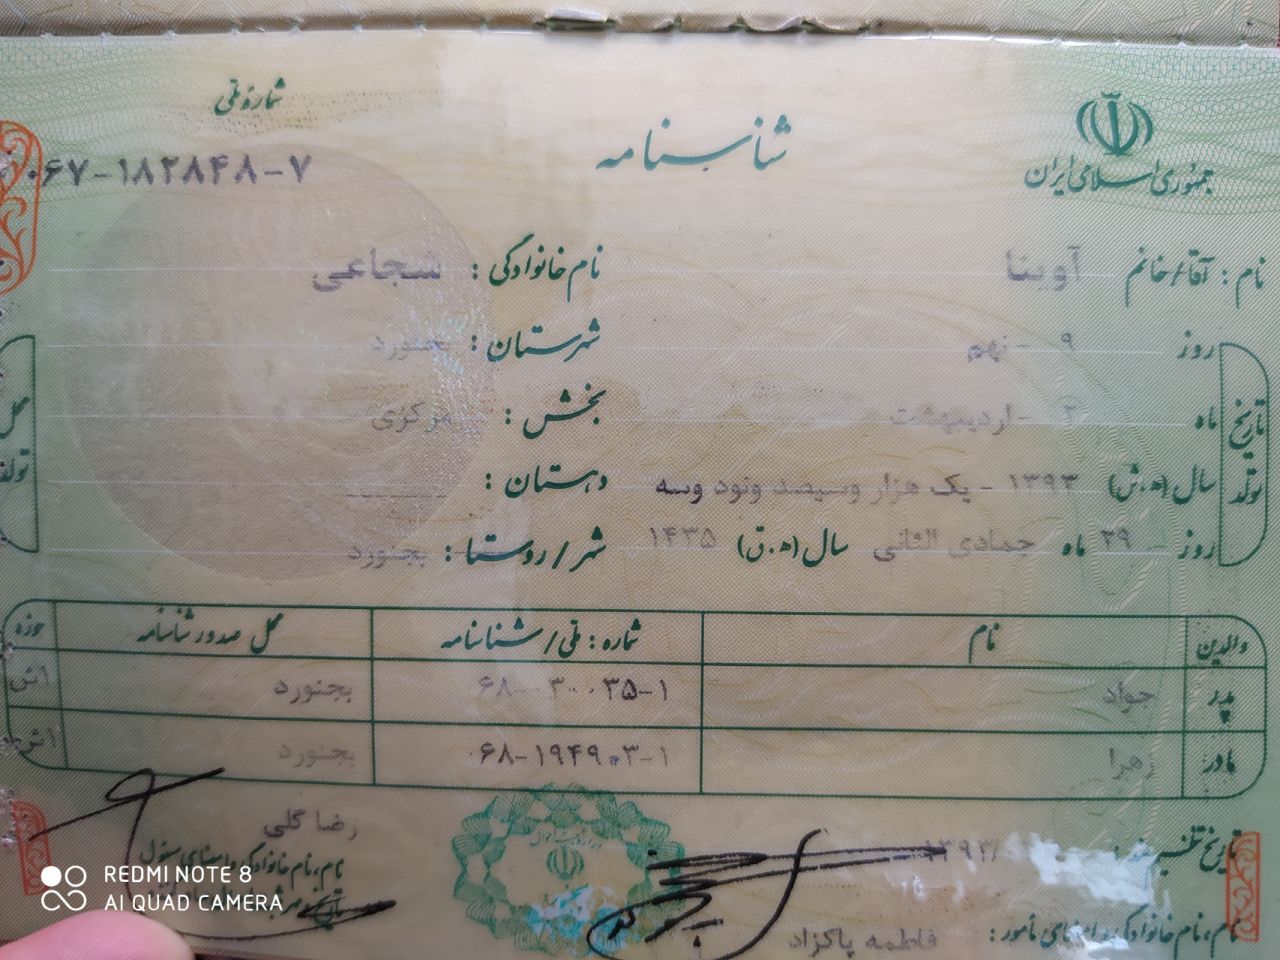 شماره ملی
۰۶۷-۱۸۲۸۴۸-۷
شناسنامه
جمهوری اسلامی ایران
نام: آقا/خانم آوینا
نام خانوادگی: شجاعی
تاریخ تولد
روز ۹ - نهم
شهرستان: بجنورد
ماه ۲ - اردیبهشت
بخش: مرکزی
سال (ه.ش) ۱۳۹۳ - یک هزار وسیصد ونود وسه
دهستان:
روز ۲۹ ماه جمادی الثانی سال (ه.ق) ۱۴۳۵
شهر/روستا: بجنورد
محل تولد
والدین نام شماره: ملی/شناسنامه محل صدور شناسنامه حوزه
پدر جواد ۰۶۸-۰۳۰۰۳۵-۱ بجنورد
مادر زهرا ۰۶۸-۱۹۴۹۰۳-۱ بجنورد
رضا گلی
نام، نام خانوادگی و امضای مسئول
تاریخ تنظیم سند: ۱۳۹۳/
نام، نام خانوادگی و امضای مأمور: فاطمه پاکزاد
REDMI NOTE 8
AI QUAD CAMERA